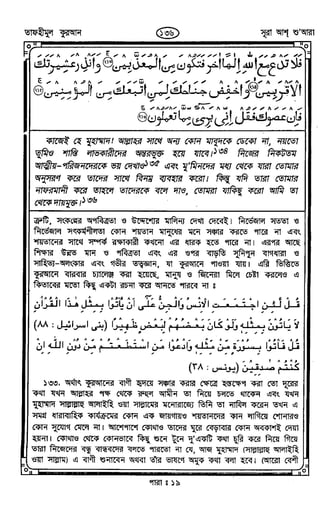 তাফহীমুল কুরআন ১৩৬ সূরা আশ্ শু'আরা
فَلَا تَدْعُ مَعَ اللهِ إِلٰهًا اٰخَرَ فَتَكُوْنَ مِنَ الْمُعَذَّبِيْنَ ﴿۲۱۳﴾ وَاَنْذِرْ عَشِيْرَتَكَ
الْاَقْرَبِيْنَ ﴿۲۱۴﴾ وَاخْفِضْ جَنَاحَكَ لِمَنِ اتَّبَعَكَ مِنَ الْمُؤْمِنِيْنَ ﴿۲۱۵﴾
فَاِنْ عَصَوْكَ فَقُلْ اِنِّىْ بَرِىْٓءٌ مِّمَّا تَعْمَلُوْنَ ﴿۲۱۶﴾
কাজেই হে মুহাম্মাদ! আল্লাহর সাথে অন্য কোন মাবুদকে ডেকো না, নয়তো
তুমিও শাস্তি লাভকারীদের অন্তরভুক্ত হয়ে যাবে।১৩৪ নিজের নিকটতম
আত্মীয়-পরিজনদেরকে ভয় দেখাও১৩৫ এবং মু'মিনদের মধ্য থেকে যারা তোমার
অনুসরণ করে তাদের সাথে বিনম্র ব্যবহার করো। কিন্তু যদি তারা তোমার
নাফরমানী করে তাহলে তাদেরকে বলে দাও, তোমরা যাকিছু করো আমি তা
থেকে দায়মুক্ত।১৩৬
ত্রুটি, সংকল্পের অপবিত্রতা ও উদ্দেশ্যের মালিন্য দেখা দেবেই। নির্ভেজাল সততা ও
নির্ভেজাল সৎকর্মশীলতা কোন শয়তান মানুষের মনে সঞ্চার করতে পারে না এবং
শয়তানের সাথে সম্পর্ক রক্ষাকারী কখনো এর ধারক হতে পারে না। এরপর আছে
শিক্ষার উন্নত মান ও পবিত্রতা এবং এর ওপর বাড়তি সুনিপুণ বাগধারা ও
সাহিত্য-অলংকার এবং গভীর তত্ত্বজ্ঞান, যা কুরআনে পাওয়া যায়। এরি ভিত্তিতে
কুরআনে বারবার চ্যালেঞ্জ করা হয়েছে, মানুষ ও জিনেরা মিলে চেষ্টা করলেও এ
কিতাবের মতো কিছু একটা রচনা করে আনতে পারবে না ঃ
قُلْ لَّئِنِ اجْتَمَعَتِ الْاِنْسُ وَالْجِنُّ عَلٰى اَنْ يَّاْتُوْا بِمِثْلِ هٰذَا الْقُرْاٰنِ
لَا يَاْتُوْنَ بِمِثْلِهٖ وَلَوْ كَانَ بَعْضُهُمْ لِبَعْضٍ ظَهِيْرًا (بنى اسرائيل : ٨٨)
قُلْ فَاْتُوْا بِسُوْرَةٍ مِّثْلِهٖ وَادْعُوْا مَنِ اسْتَطَعْتُمْ مِّنْ دُوْنِ اللهِ اِنْ
كُنْتُمْ صٰدِقِيْنَ (يونس : ٣٨)
১৩৩. অর্থাৎ কুরআনের বাণী হৃদয়ে সঞ্চার করার ক্ষেত্রে হস্তক্ষেপ করা তো দূরের
কথা যখন আল্লাহর পক্ষ থেকে রূহুল আমীন তা নিয়ে চলতে থাকেন এবং যখন
মুহাম্মাদ সাল্লাল্লাহু আলাইহি ওয়া সাল্লামের মনোরাজ্যে তিনি তা নাযিল করেন তখন এ
সমগ্র ধারাবাহিক কার্যক্রমের কোন এক জায়গায়ও শয়তানদের কান লাগিয়ে শোনারও
কোন সুযোগ মেলে না। আশেপাশে কোথাও তাদের ঘুরে বেড়াবার কোন অবকাশই দেয়া
হয়না। কোথাও থেকে কোনভাবে কিছু শুনে টুনে দু'একটি কথা চুরি করে নিয়ে গিয়ে
তারা নিজেদের বন্ধু বান্ধবদের বলতে পারতো না যে, আজ মুহাম্মাদ (সাল্লাল্লাহু আলাইহি
ওয়া সাল্লাম) এ বাণী শুনাবেন অথবা তাঁর ভাষণে অমুক কথা বলা হবে। (আরো বেশী
পারা ঃ ১৯